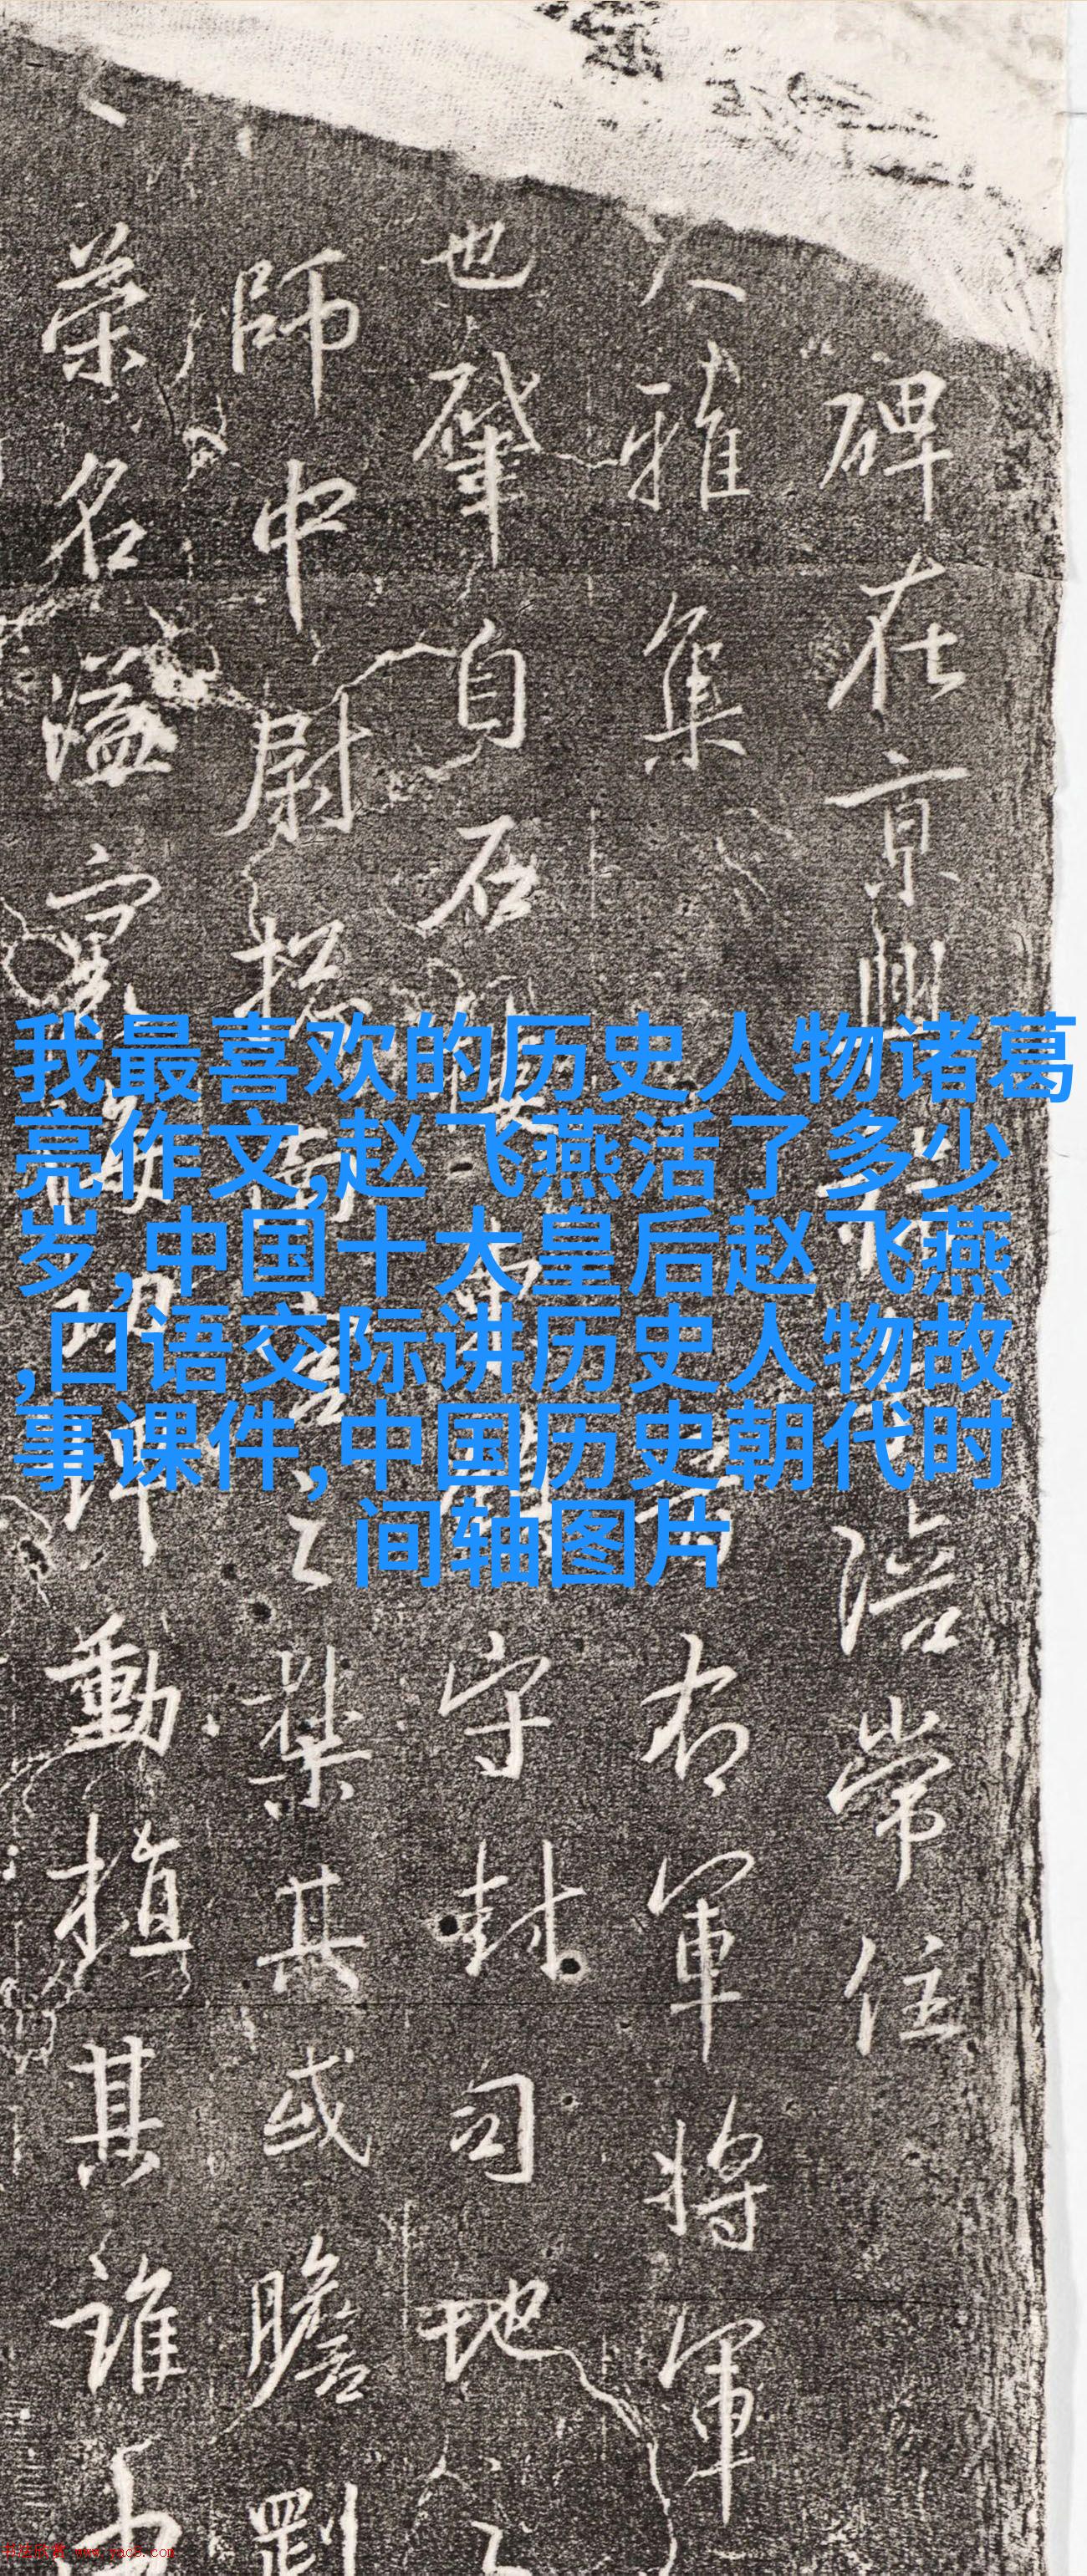 碑在京
陪常住
雅集
右軍將軍
也肇自石
守封司地
師中尉
之葉其或瞻劉
榮名溢寰
動植其誰由
我最喜欢的历史人物诸葛
亮作文,赵飞燕活了多少
岁,中国十大皇后赵飞燕
,口语交际讲历史人物故
事课件,中国历史朝代时
间轴图片
书法欣赏 www.yac8.com